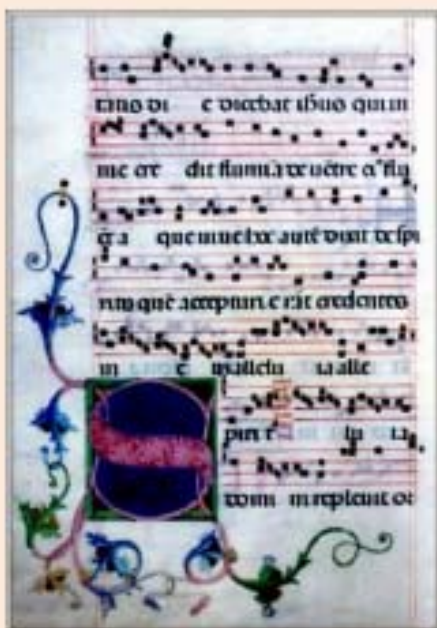 timo di e dicebat ihus qui in
me cre dit flumina de uētre flu
a que uiue hoc autē dixit de spi
ritu quē accepturi erāt credentes
in e m allelu ia alle
S piri t lu ia
domi ni repleuit or